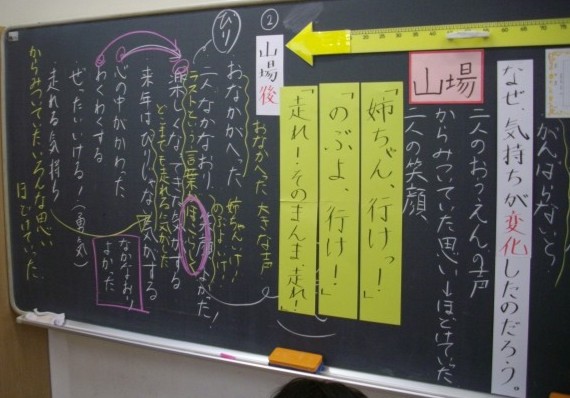 がんばらないと
なぜ、気持ちが変化したのだろう。
二人のおうえんの声
からみついていた思い→ほどけていった
二人の笑顔、
山場
「姉ちゃん、行けっ!」
「のぶよ、行け!」
「走れ!そのまんま、走れ!」
②
山場後
おなかへった大きな声
びり
おなかがへった
姉ちゃんいけ!
のぶよいけ!
二人なかなおり
ラストという言葉
ほこらしい
楽しくなってきた気がする
どこまでも走れる気がした
来年はびりじゃない気がする
心の中がかわった
わくわくする
ぜったいいける!(勇気)
走れる気持ち
なかなおり
よかった
からみついていたいろんな思い
ほどけていった